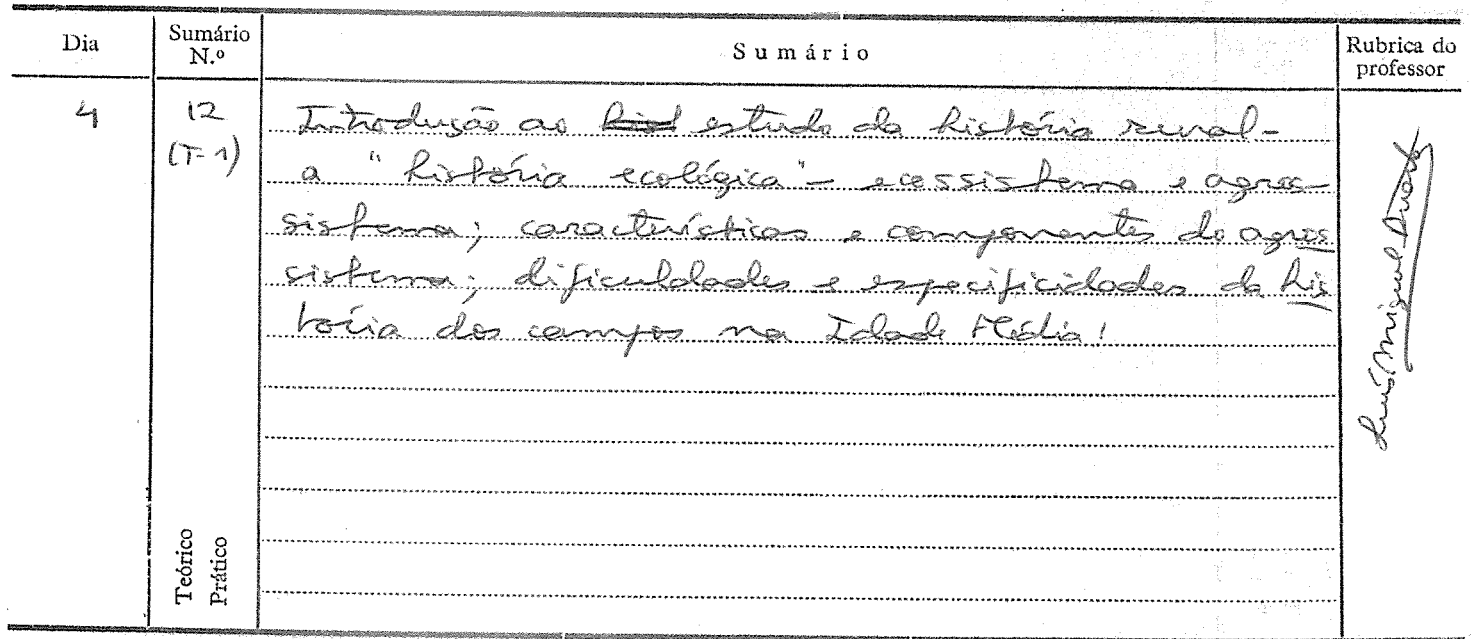 Dia
Sumário N.º
Sumário
Rubrica do professor
4
12
(T-1)
Introdução ao estudo da história rural-
a "história ecológica" - ecossistema e agros-
sistema; características e componentes do agros
sistema; dificuldades e especificidades da his
tória dos campos na Idade Média!
Luís Miguel Duarte
Teórico
Prático